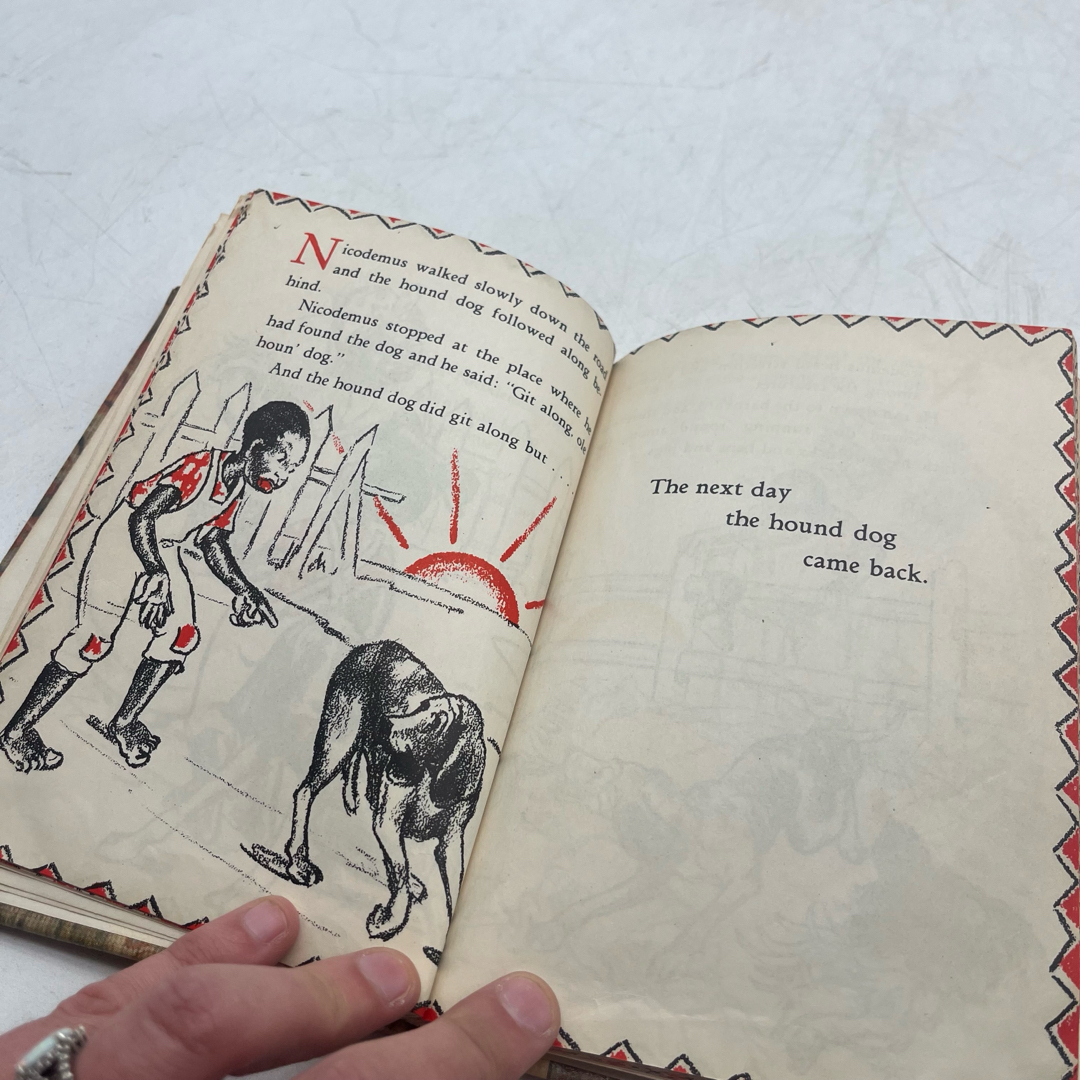 Nicodemus walked slowly down the road
and the hound dog followed along be-
hind.
Nicodemus stopped at the place where he
had found the dog and he said: "Git along, ole
houn' dog."
And the hound dog did git along but . . .
The next day
the hound dog
came back.